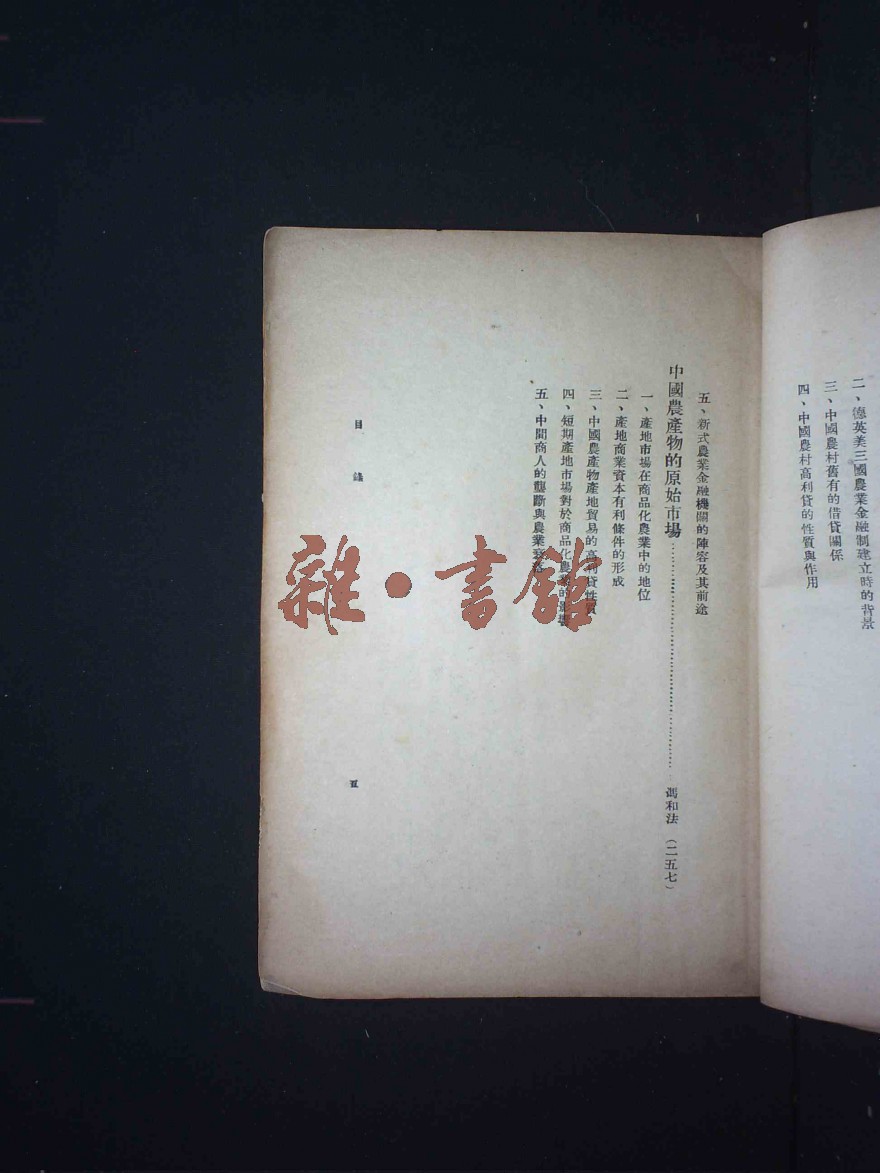 二、德英美三國農業金融制建立時的背景
三、中國農村舊有的借貸關係
四、中國農村高利貸的性質與作用
五、新式農業金融機關的陣容及其前途
中國農產物的原始市場 馮和法 (二五七)
一、產地市場在商品化農業中的地位
二、產地商業資本有利條件的形成
三、中國農產物產地貿易的高利貸性質
四、短期產地市場對於商品化農業的影響
五、中間商人的壟斷與農業衰落
目錄
五
雜·書館